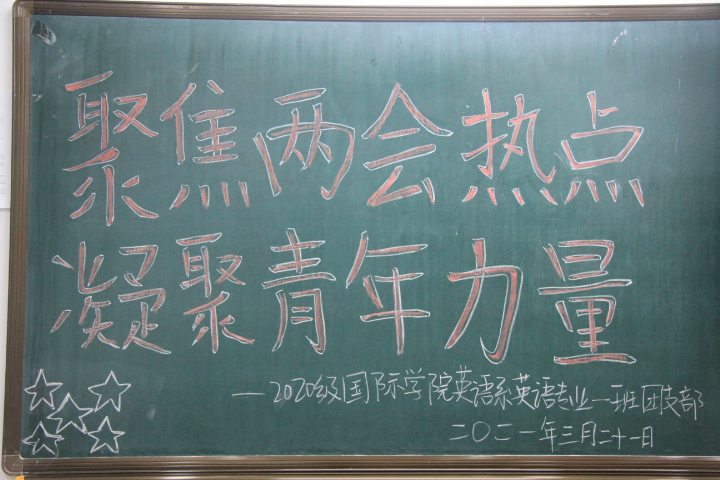 聚焦两会热点
凝聚青年力量
——2020级国际学院英语系英语专业一班团支部
二〇二一年三月二十一日